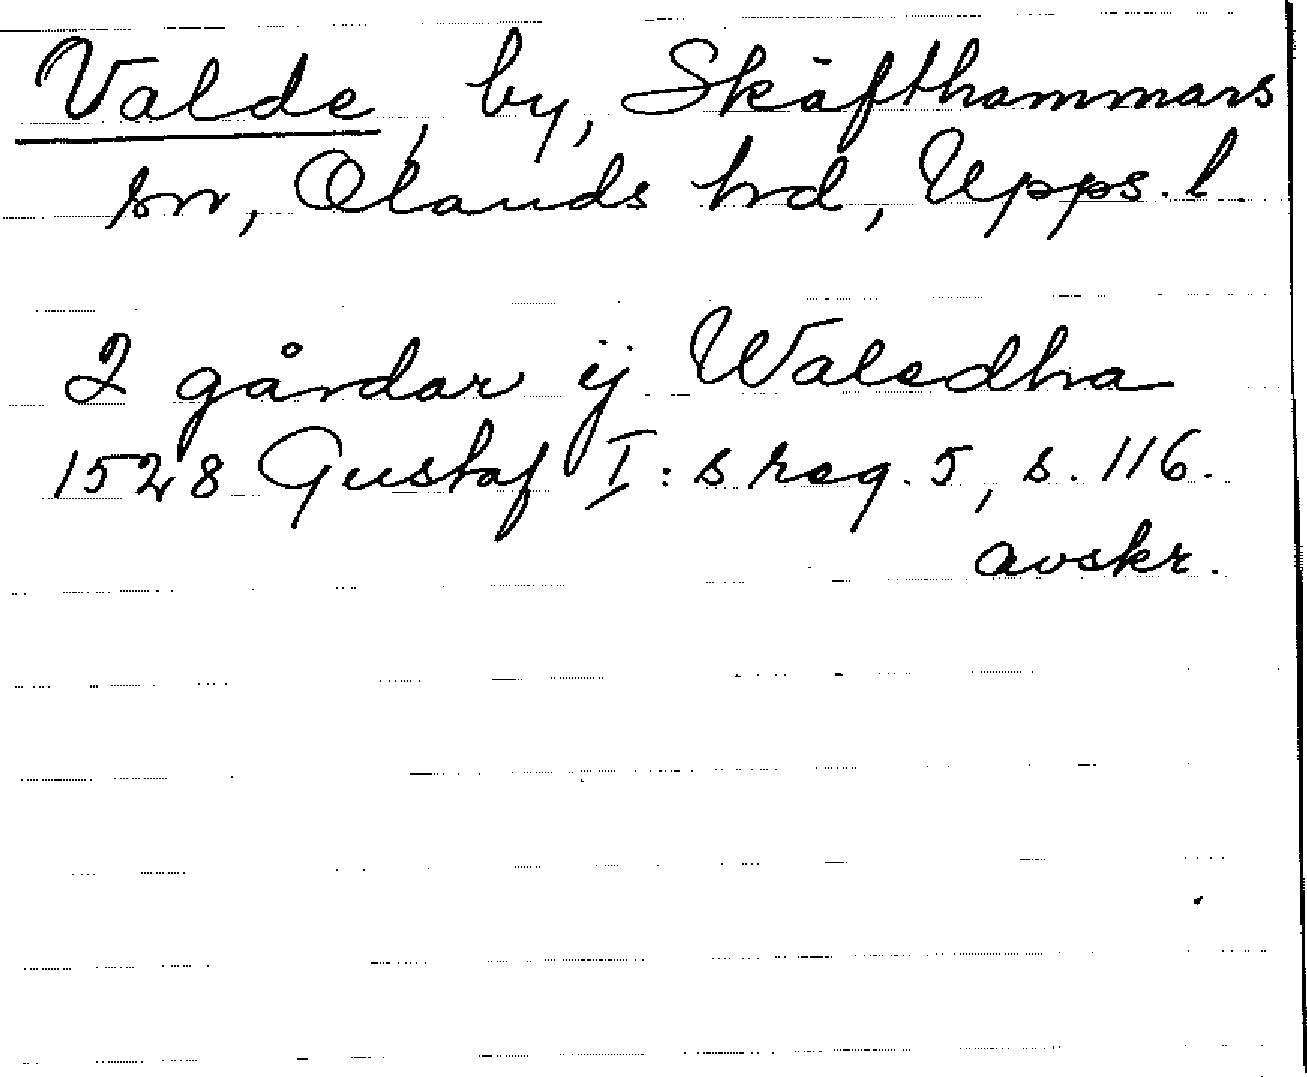 Valde, by, Skäfthammars
sn, Olands hrd, Upps. l.
2 gårdar ij Waledha
1528 Gustaf I:s reg. 5, s. 116.
avskr.